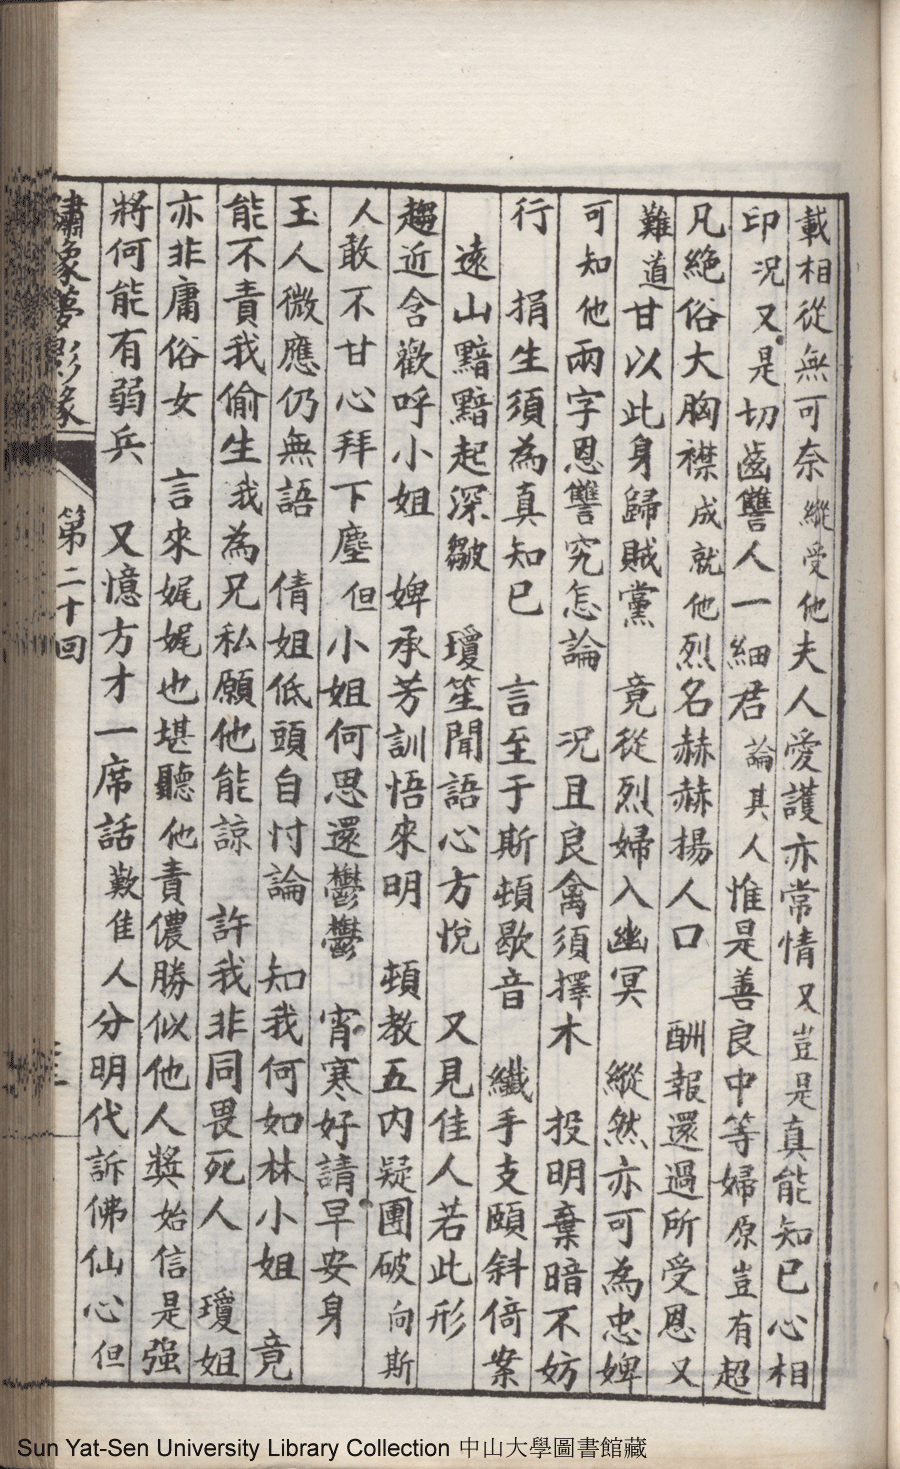 載相從無可奈縱受他夫人愛護亦常情又豈是真能知已心相
印況又是切齒讐人一細君論其人惟是善良中等婦原豈有超
凡絕俗大胸襟成就他烈名赫赫揚人口 酬報還過所受恩又
難道甘以此身歸賊黨 竟從烈婦入幽冥 縱然亦可為忠婢
可知他兩字恩讐究怎論 況且良禽須擇木 投明棄暗不妨
行 捐生須為真知已 言至于斯頓歇音 纖手支頤斜倚案
遠山黯黯起深皺 瓊笙聞語心方悅 又見佳人若此形
趨近含歡呼小姐 婢承芳訓悟來明 頓教五內疑團破向斯
人敢不甘心拜下塵但小姐何思還鬱鬱 宵寒好請早安身
玉人微應仍無語 倩姐低頭自忖論 知我何如林小姐 竟
能不責我偷生我為兄私願他能諒 許我非同畏死人 瓊姐
亦非庸俗女 言來娓娓也堪聽他責儂勝似他人獎始信是強
將何能有弱兵 又憶方才一席話歎佳人分明代訴佛仙心但
繡像夢影緣 第二十回
Sun Yat-Sen University Library Collection 中山大學圖書館藏